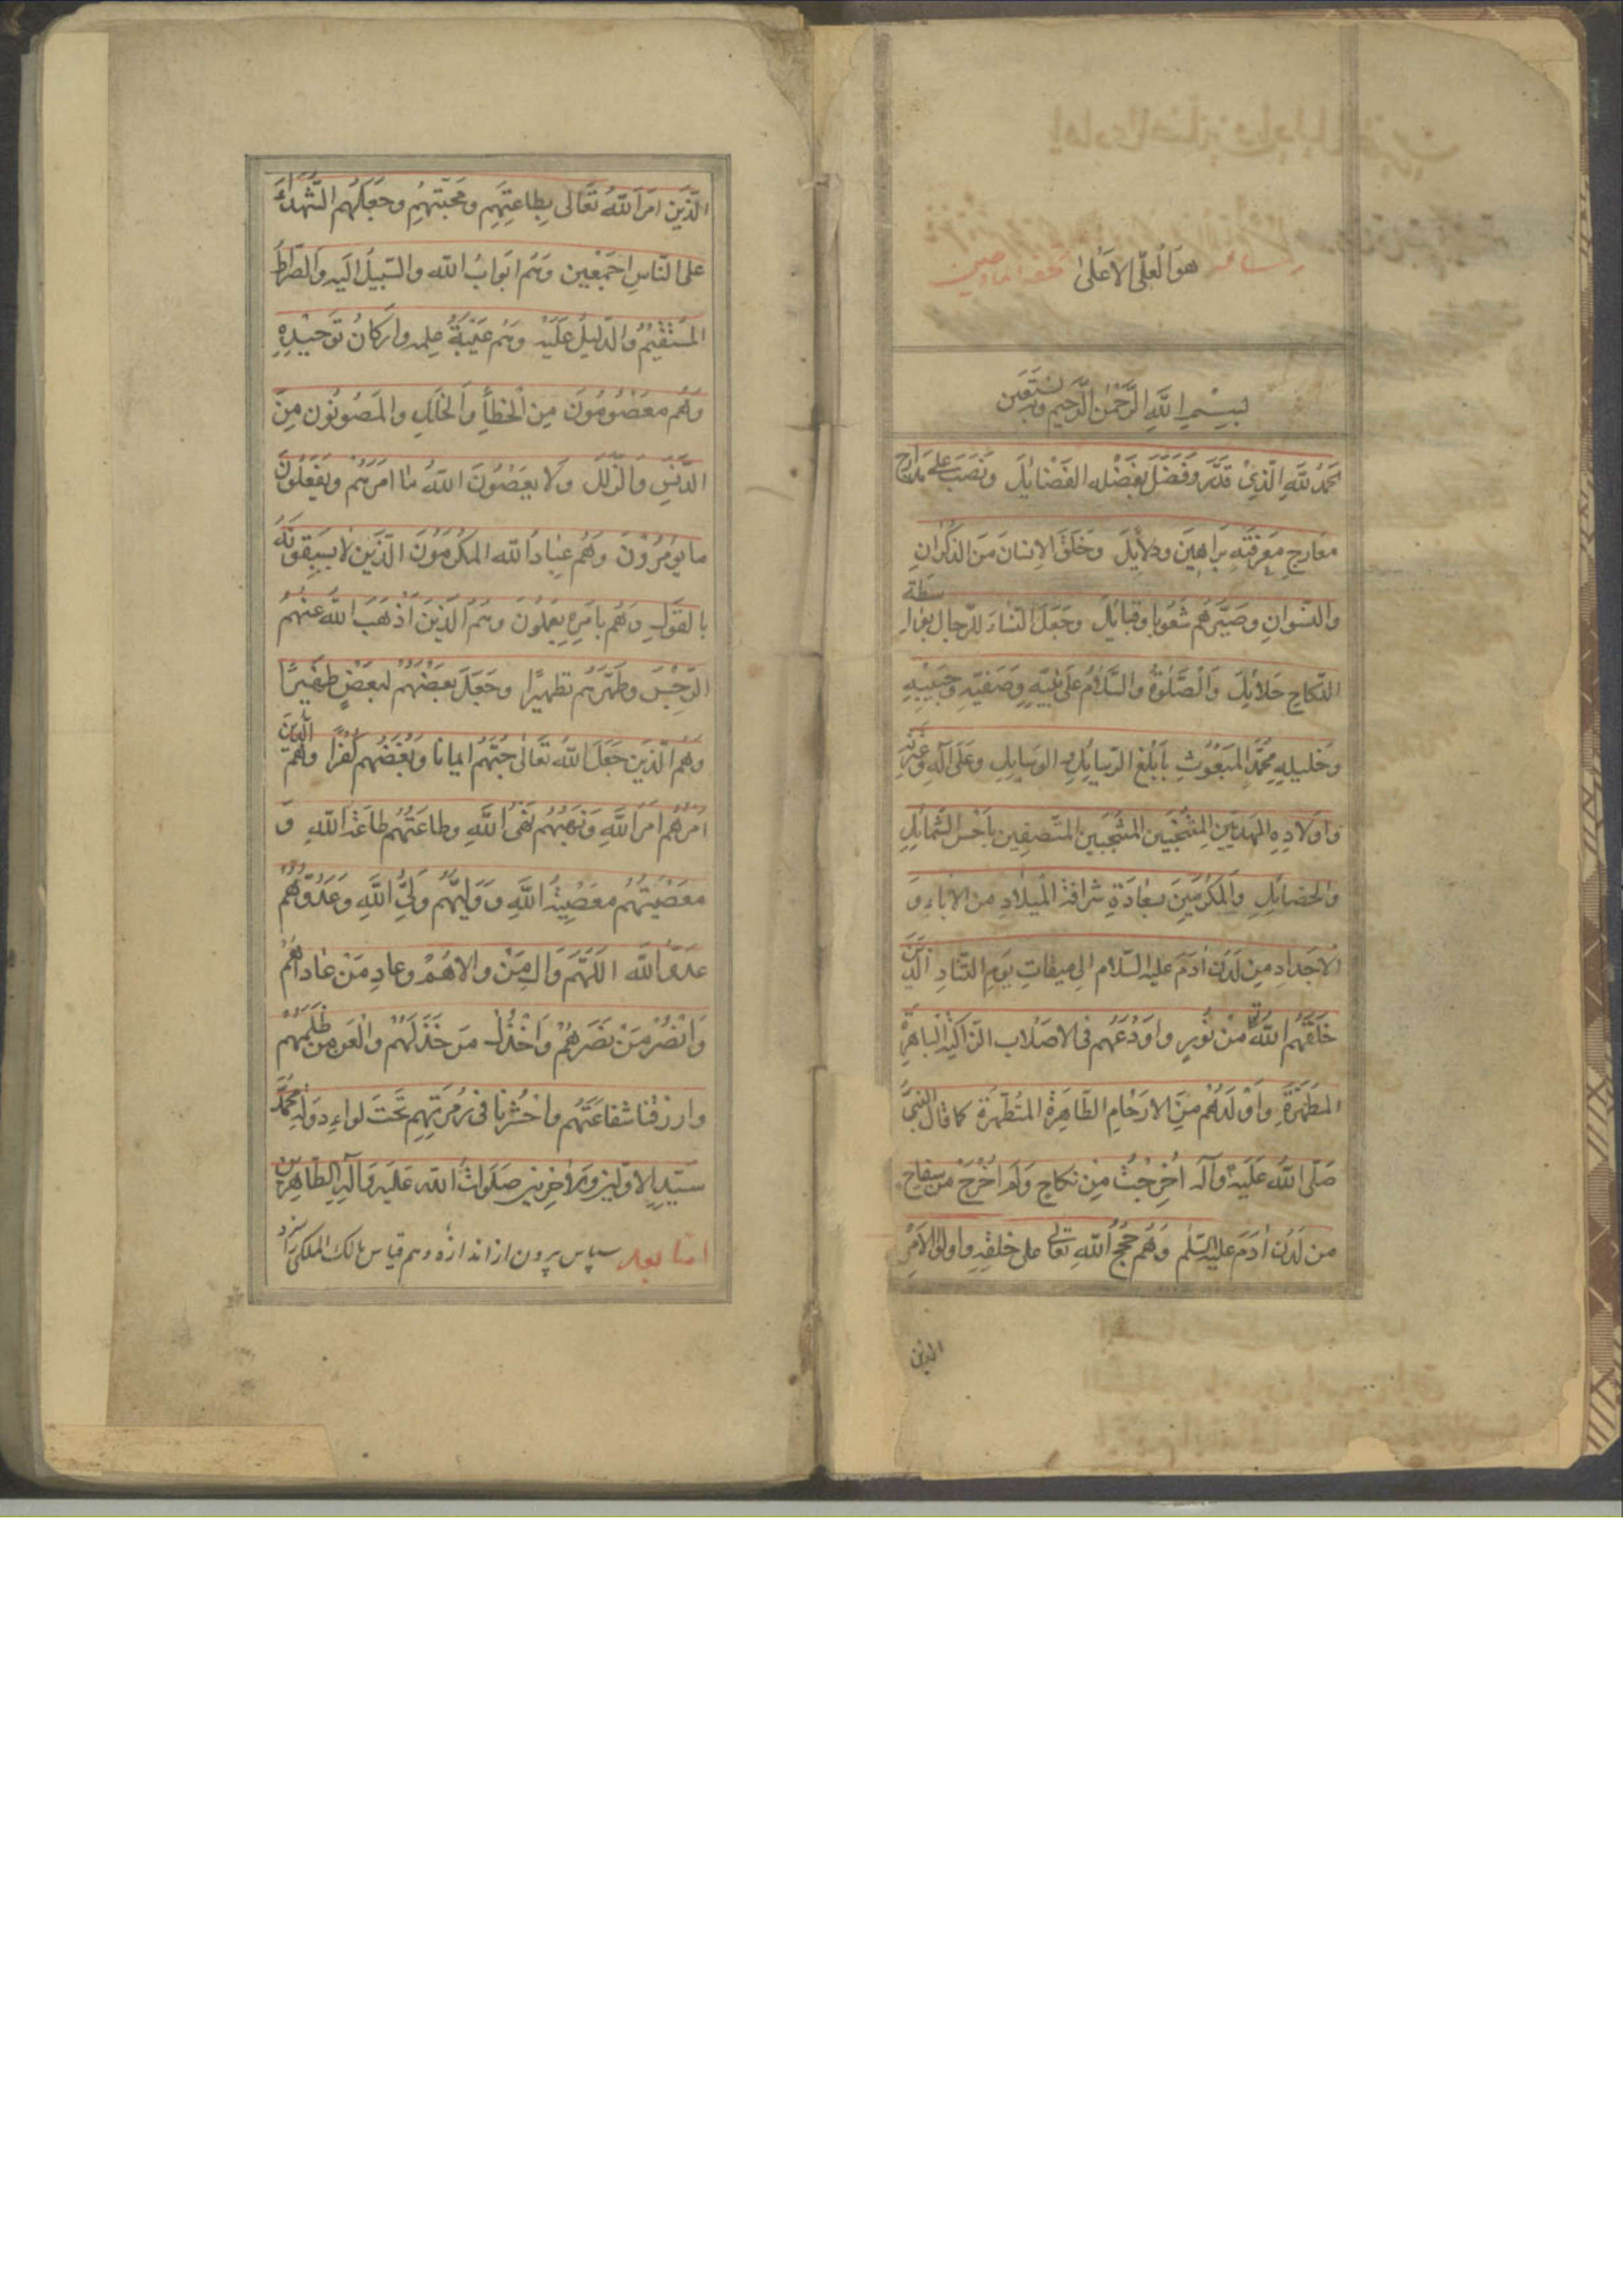 هو العلی الاعلی
بسم الله الرحمن الرحیم وبه نستعین
الحمد لله الذی قدر وفضل بفضله الفضایل ونصب علی مدارج
معارج معرفته براهین ودلایل وخلق الانسان من الذکران
والنسوان وصیرهم شعوبا وقبایل وجعل النساء للرجال بواسطة
النکاح حلایل والصلوة والسلام علی نبیه وصفیه وحبیبه
وخلیله محمد المبعوث بابلغ الرسایل والوسایل وعلی آله وعترته
واولاده المهدیین المنتجبین المتصفین باحسن الشمایل
والخصایل والمکرمین بسعادة شرافة المیلاد من الاباء و
الاجداد من لدن ادم علیه السلام الی میقات یوم التناد الذین
خلقهم الله تعالی من نوره واودعهم فی الاصلاب الزاکیة الباهرة
المطهرة واولدهم من الارحام الطاهرة المتطهرة کما قال النبی
صلی الله علیه وآله اخرجت من نکاح ولم اخرج من سفاح
من لدن ادم علیه السلم وهم حجج الله تعالی علی خلقه واولوا الامر
الذین
الذین امر الله تعالی بطاعتهم ومحبتهم وجعلهم الشهداء
علی الناس اجمعین وهم ابواب الله والسبیل الیه والصراط
المستقیم والدلیل علیه وهم عیبة علمه وارکان توحیده
وهم معصومون من الخطأ والخلل والمصونون من
الدنس والزلل ولا یعصون الله ما امرهم ویفعلون
ما یؤمرون وهم عباد الله المکرمون الذین لا یسبقونه
بالقول وهم بامره یعملون وهم الذین اذهب الله عنهم
الرجس وطهرهم تطهیرا وجعل بعضهم لبعض ظهیرا
وهم الذین جعل الله تعالی حبهم ایمانا وبغضهم کفرا وهم الذین
امرهم امر الله ونهیهم نهی الله وطاعتهم طاعة الله و
معصیتهم معصیة الله وولیهم ولی الله وعدوهم
عدو الله اللهم وال من والاهم وعاد من عاداهم
وانصر من نصرهم واخذل من خذلهم والعن من ظلمهم
وارزقنا شفاعتهم واحشرنا فی زمرتهم تحت لواء دولة محمد
سید الاولین والاخرین صلوات الله علیه وآله الطاهرین
اما بعد سپاس برون از اندازه وهم قیاس مالک الملکی را سزد